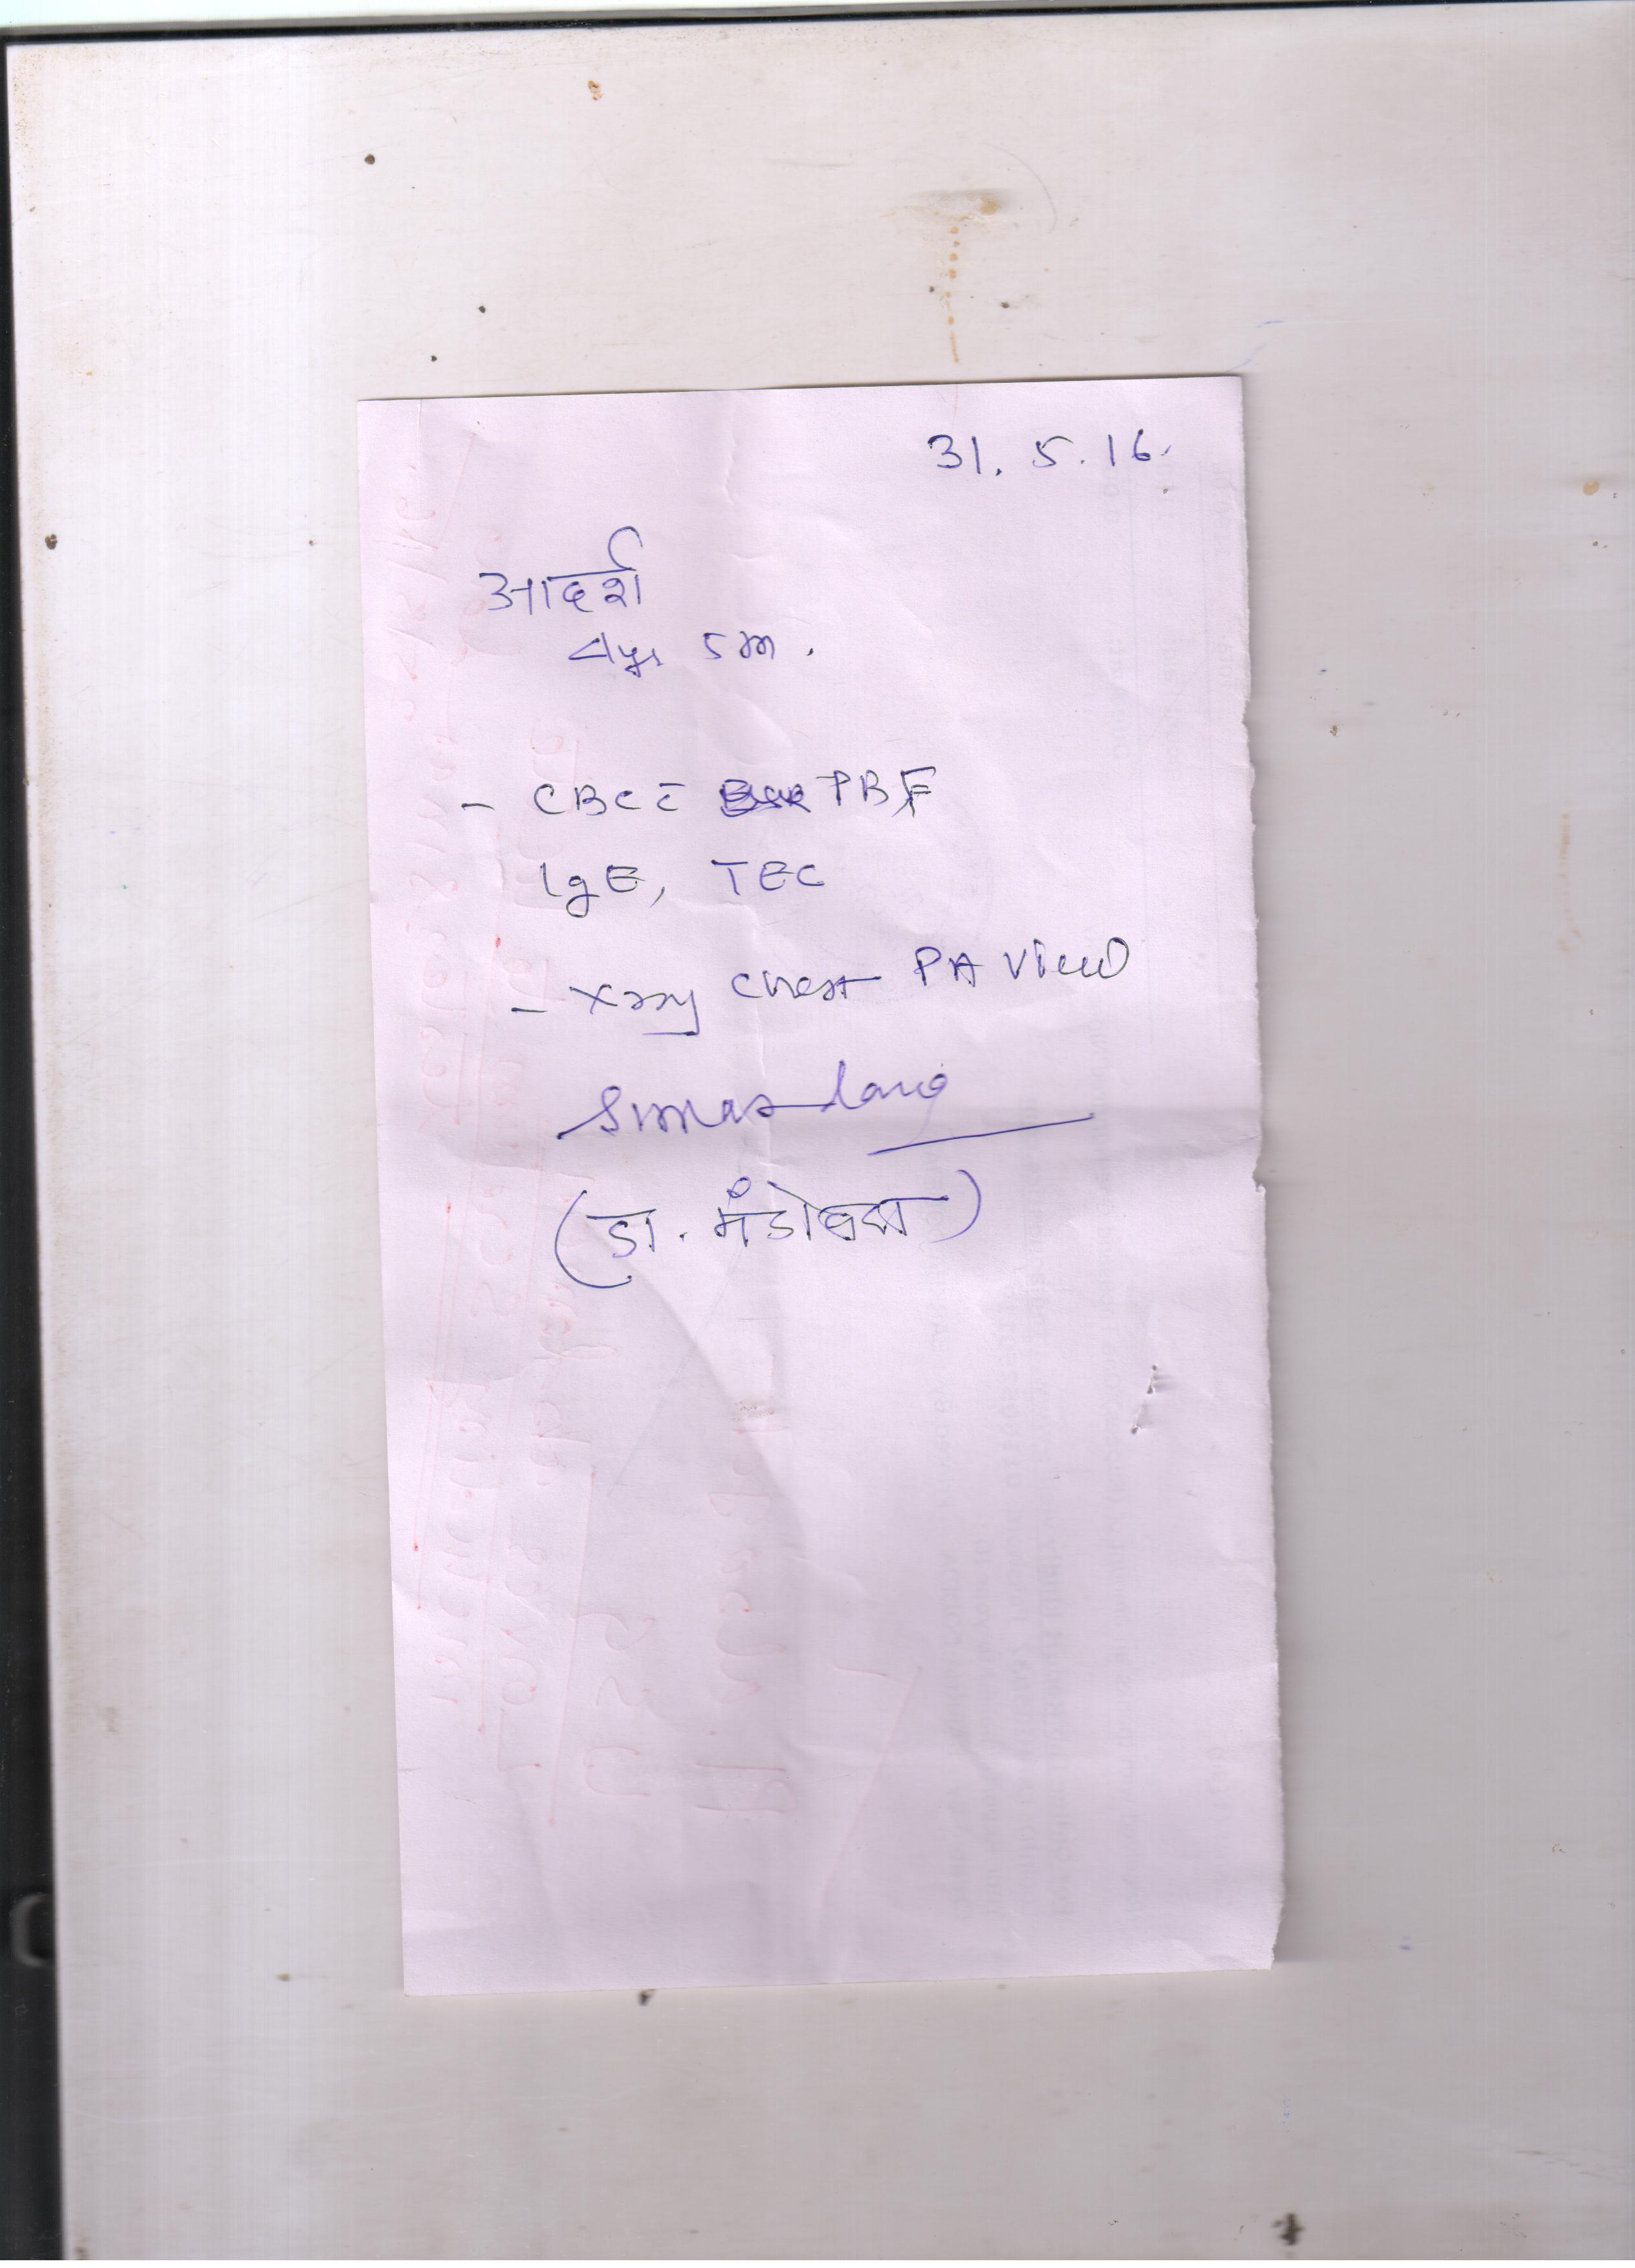 31. 5. 16.
आदर्श
4yrs 5m.
- CBC c̄ PBF
IgE, TEC
- Xray chest PA view
(डा. मंडोवरा)